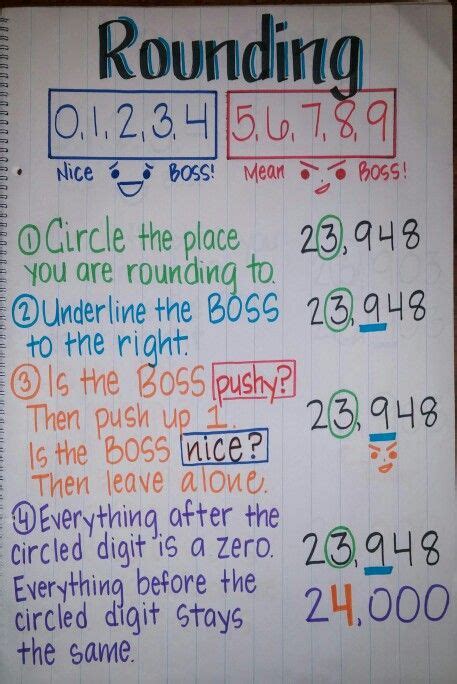 Rounding
0,1,2,3,4 5,6,7,8,9
Nice BOSS! Mean BOSS!
① Circle the place 23,948
you are rounding to.
② Underline the BOSS 23,948
to the right.
③ Is the BOSS pushy?
Then push up 1. 23,948
Is the BOSS nice?
Then leave alone.
④ Everything after the
circled digit is a zero. 23,948
Everything before the 24,000
circled digit stays
the same.